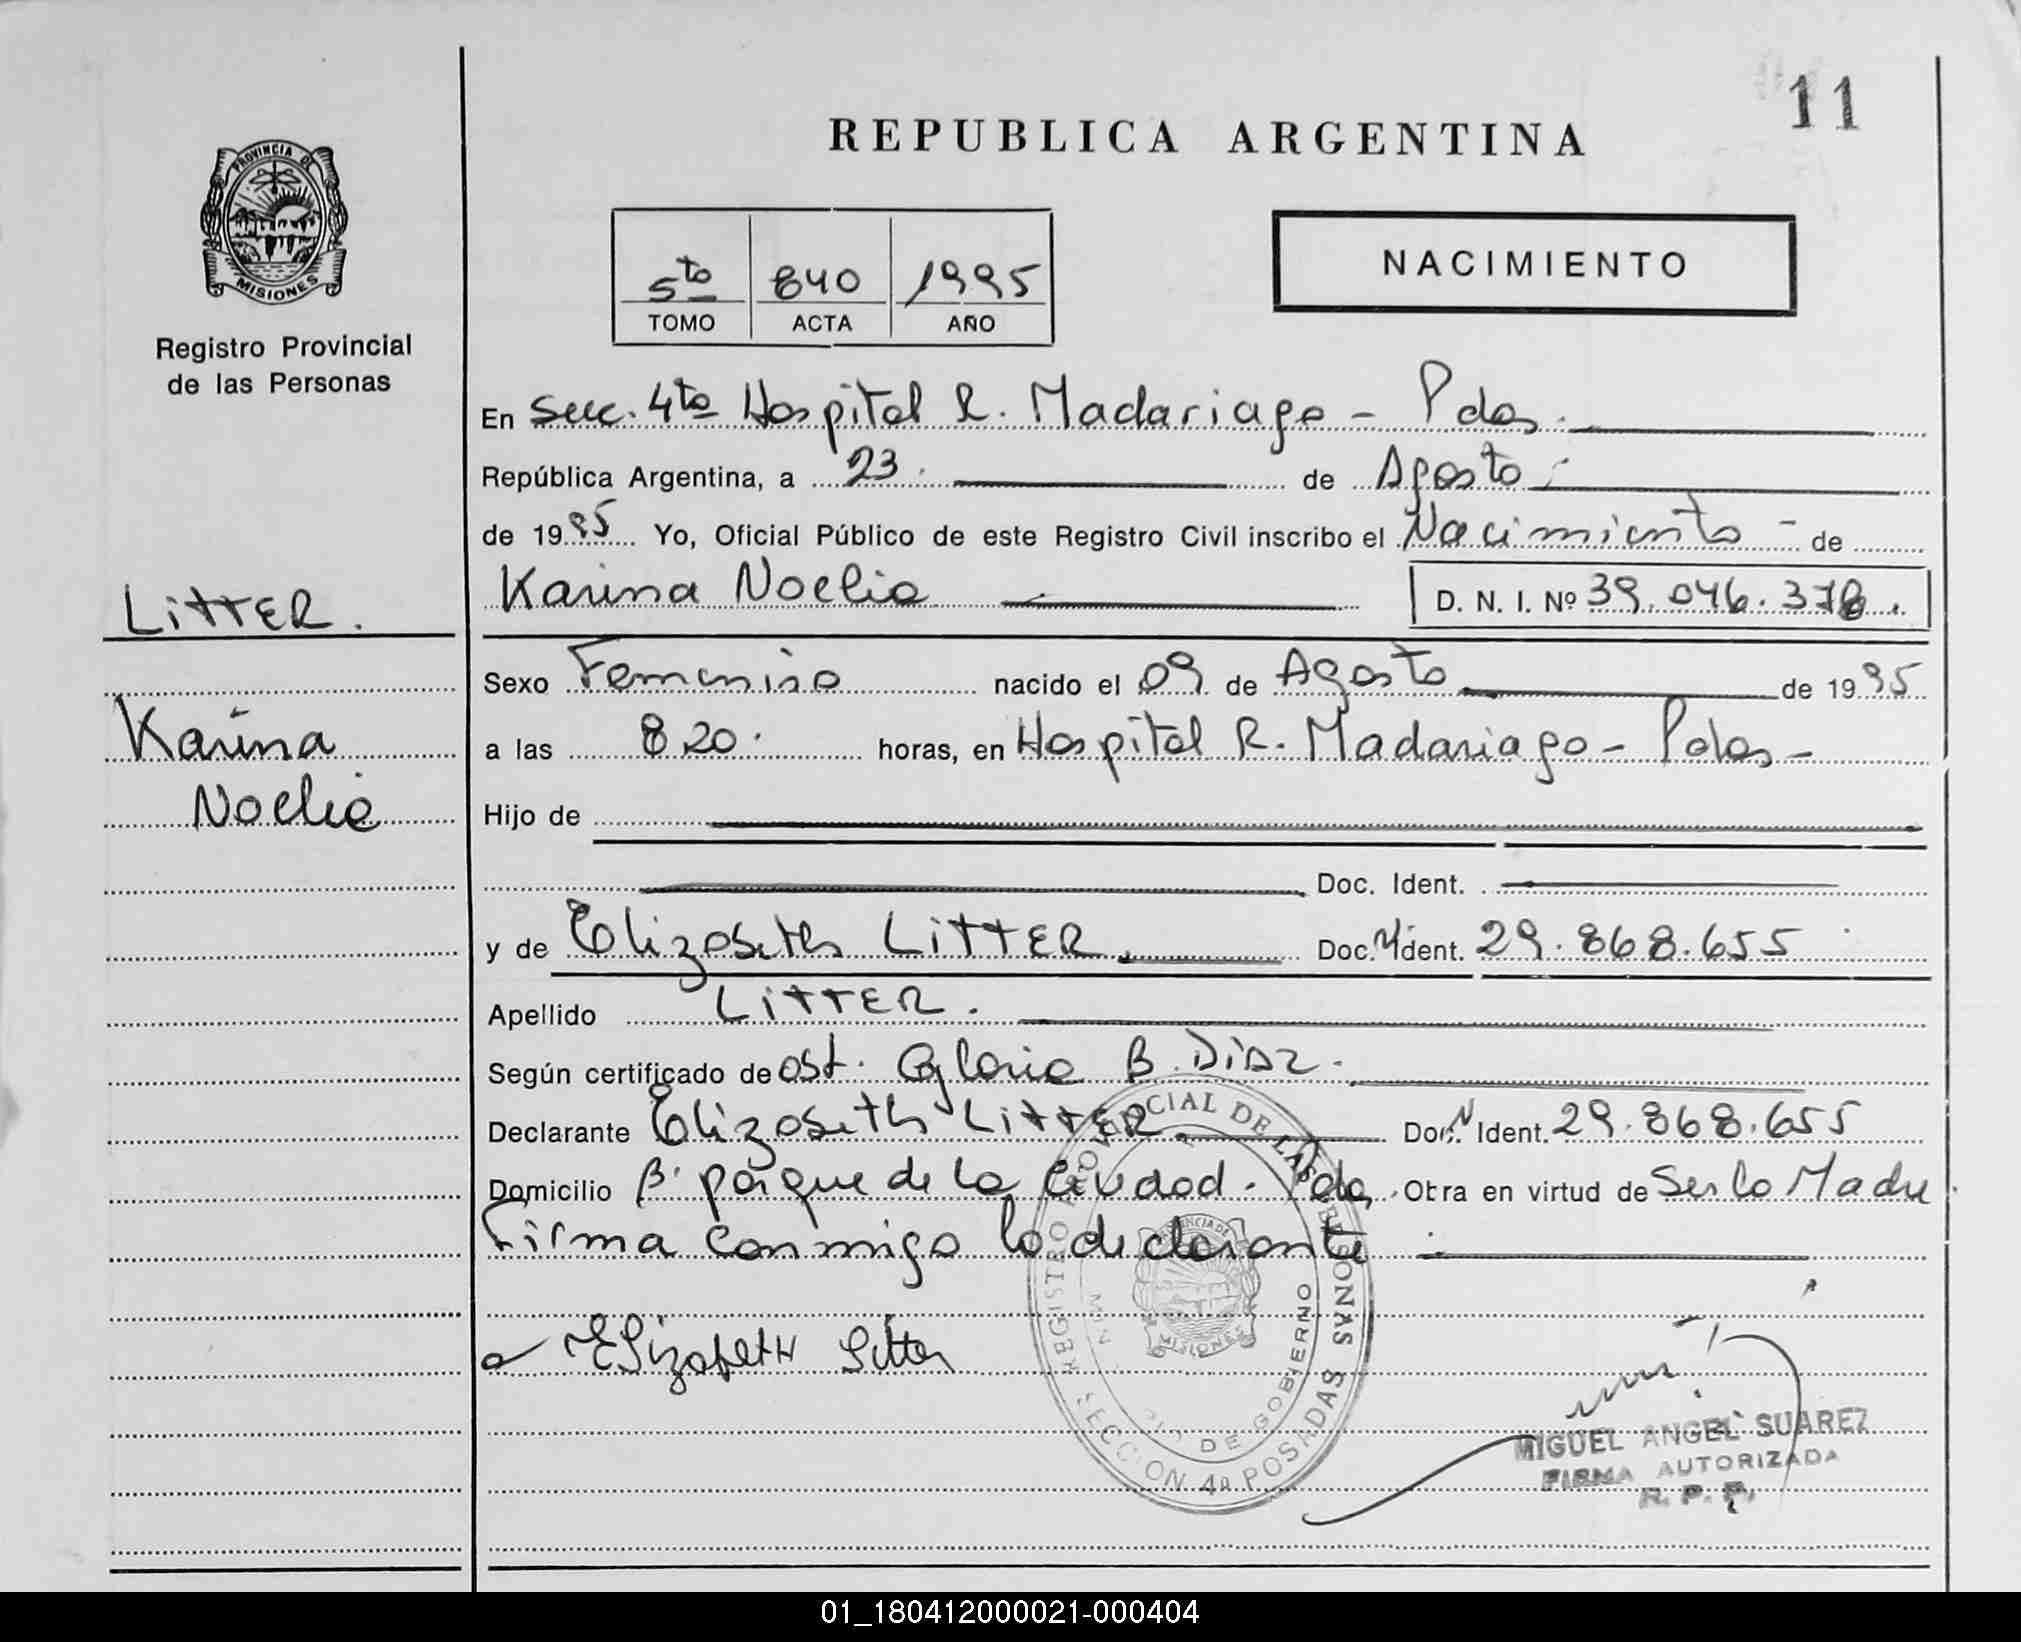 11
REPUBLICA ARGENTINA
PROVINCIA DE
MISIONES
Registro Provincial
de las Personas
5to 840 1995
TOMO ACTA AÑO
NACIMIENTO
En Secc. 4ta Hospital R. Madariaga - Pdas.
República Argentina, a 23. de Agosto
de 1995 Yo, Oficial Público de este Registro Civil inscribo el Nacimiento - de
Karina Noelia D. N. I. Nº 39.046.378.
LITTER.
Sexo Femenino nacido el 09 de Agosto de 1995
Karina
a las 8,20. horas, en Hospital R. Madariaga - Pdas -
Noelia
Hijo de
Doc. Ident.
y de Elizabeth LITTER. Doc. Ident. 29.868.655
Apellido LITTER.
Según certificado de Ost. Gloria B. Diaz.
Declarante Elizabeth LITTER. Doc. Ident. 29.868.655
Domicilio Bº parque de la Ciudad. Pdas. Obra en virtud de Ser la Madre.
Firma conmigo la declarante
Elizabeth Litter
REGISTRO PROVINCIAL DE LAS PERSONAS
DE GOBIERNO
MISIONES
SECCION 4a POSADAS
MIGUEL ANGEL SUAREZ
FIRMA AUTORIZADA
R. P. P.
01_180412000021-000404